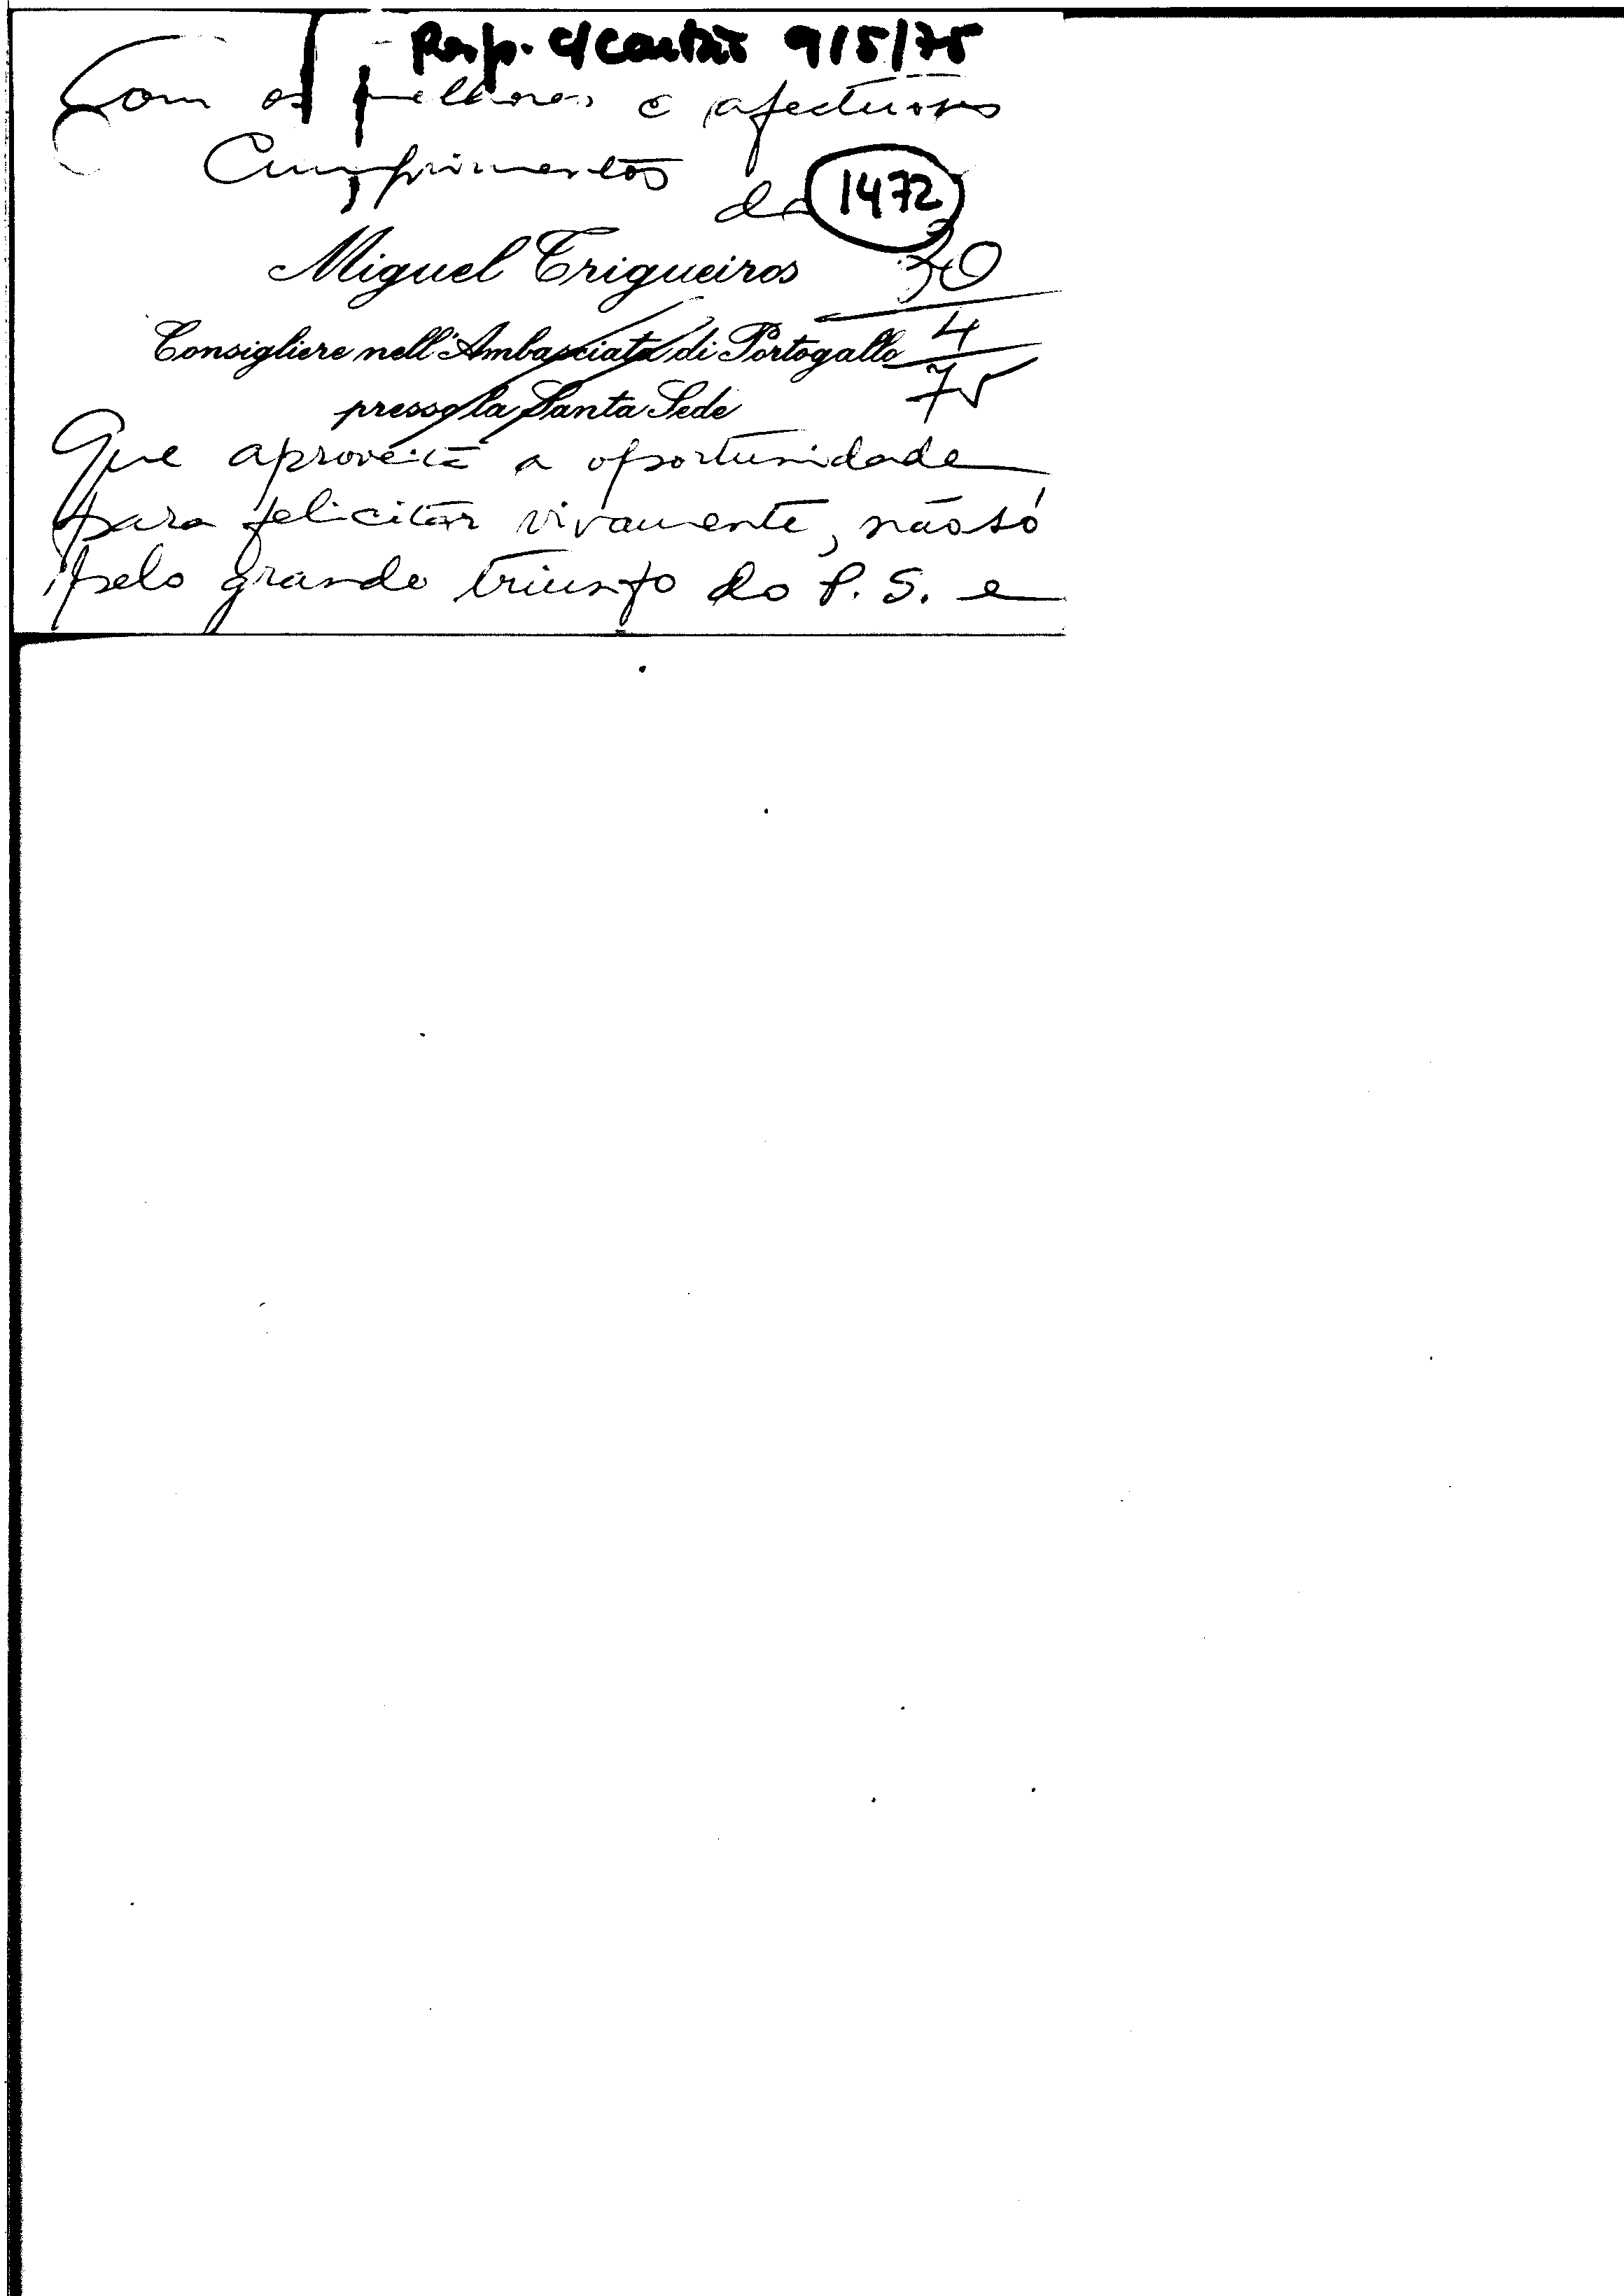 Resp. c/ cartão 9/5/75
Com os melhores e afectuosos
Cumprimentos
de
1472
Miguel Trigueiros
30
4
75
Consigliere nell'Ambasciata di Portogallo
presso la Santa Sede
Que aproveita a oportunidade
para felicitar vivamente, não só
pelo grande triunfo do P. S. e